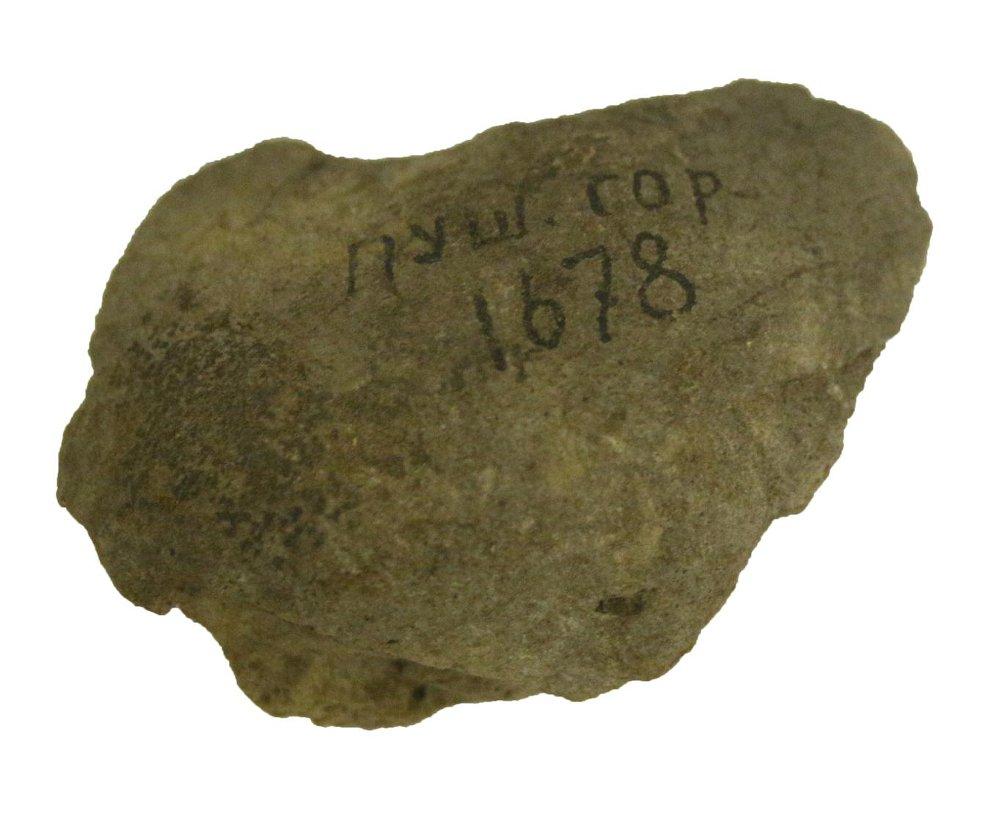 пуш. гор
1678